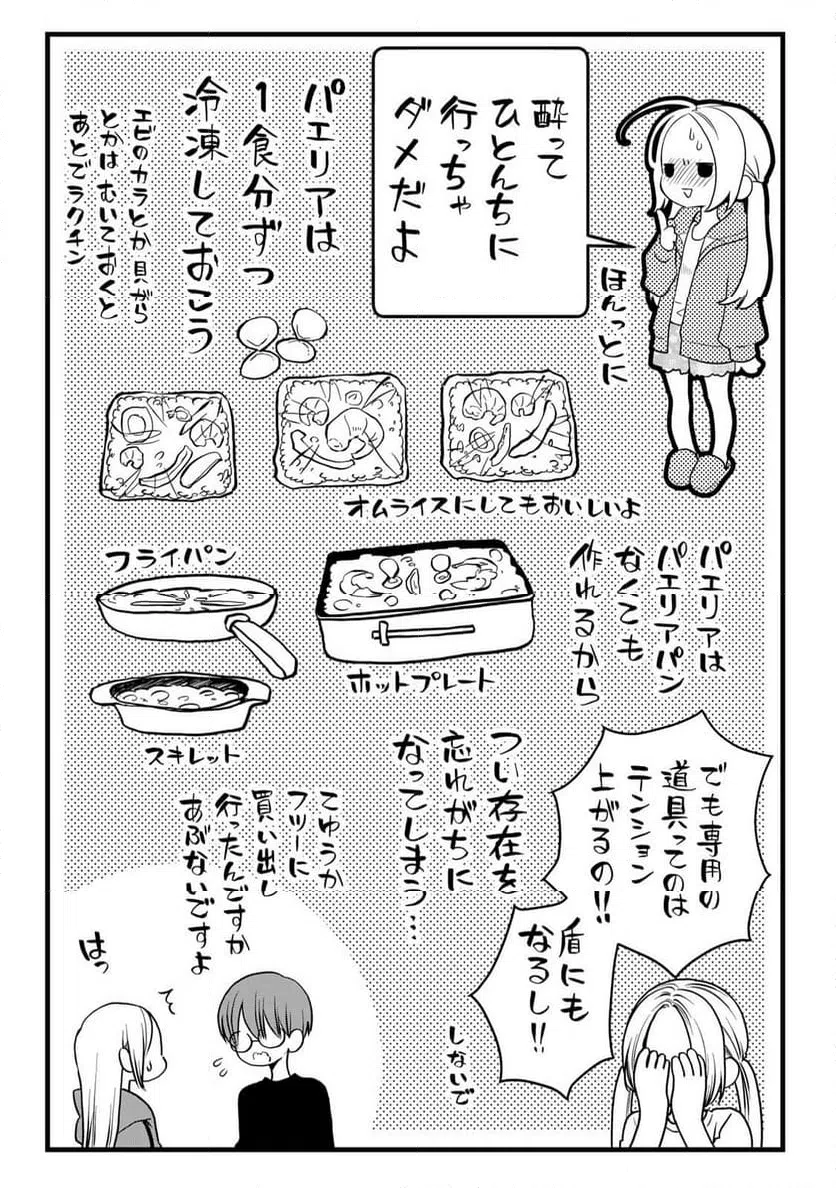 酔って
ひとんちに
行っちゃ
ダメだよ
ほんっとに
パエリアは
1食分ずつ
冷凍しておこう
エビのカラとか貝がら
とかはむいておくと
あとでラクチン
オムライスにしてもおいしいよ
パエリアは
パエリアパン
なくても
作れるから
フライパン
ホットプレート
スキレット
つい存在を
忘れがちに
なってしまう…
でも専用の
道具ってのは
テンション
上がるの!!
盾にも
なるし!!
しないで
こゆうか
フツーに
買い出し
行ったんですか
あぶないですよ
はっ